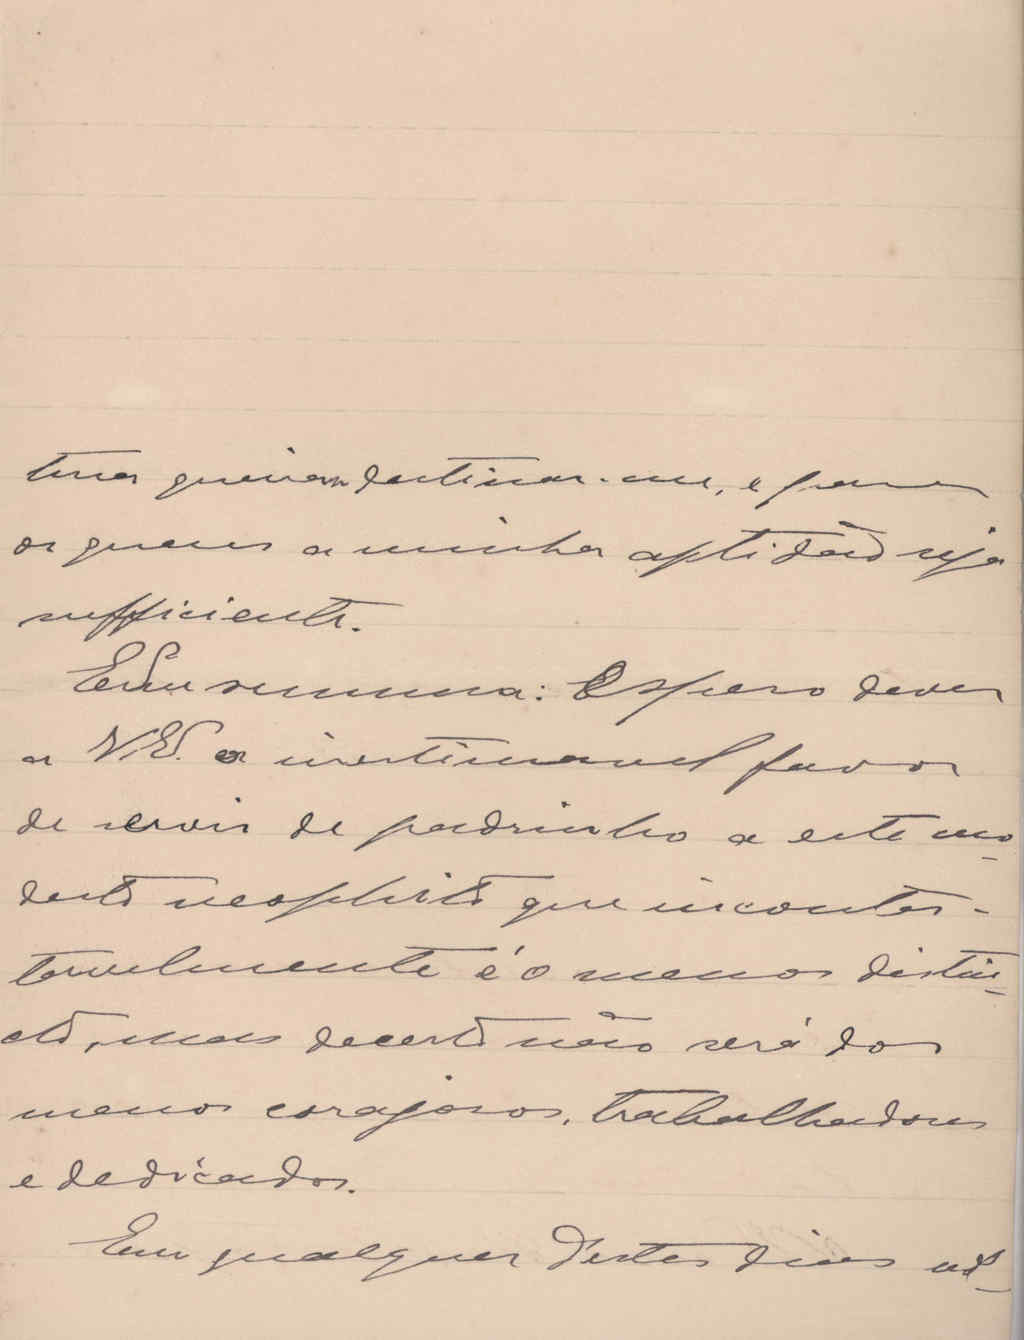 tura queiram destinar-me, e para
os quaes a minha aptidão seja
sufficiente.
Em summa: Espero dever
a V.E. o inestimavel favor
de servir de padrinho a este mo-
desto neophito que incontes-
tavelmente é o menos distin-
cto, mas decerto não será dos
menos corajosos, trabalhadores
e dedicados.
Em qualquer d'estes dias